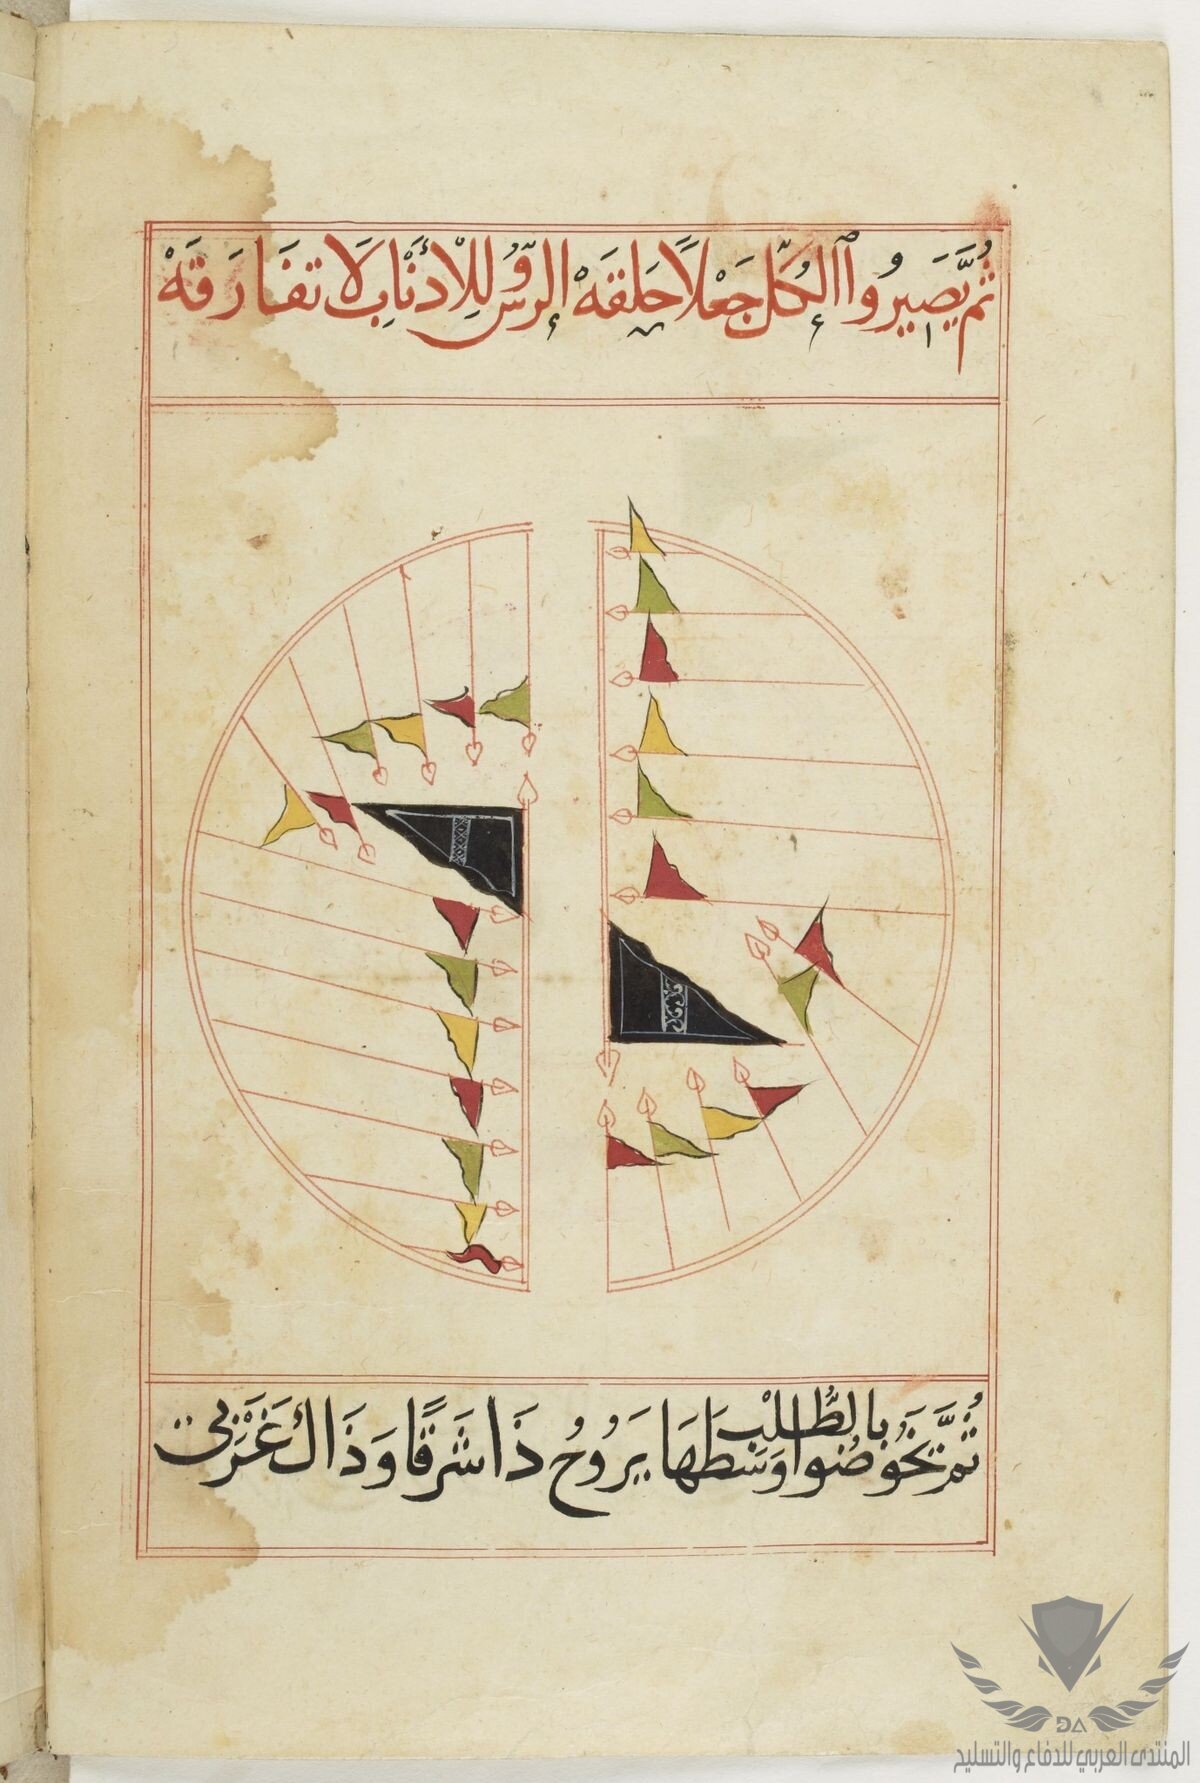 ثُمَّ يَصِيرُوا الكُلّ جَعْلاً حَلقَهْ الرُّوُس لِلْأذْنَابِ لَا تفَارَقَهْ
ثُمَّ تَخُوضُوا بالطُّلْبِ وَسَطهَا يَرُوُحُ ذَا شَرقًا وَذَاكَ غَرْبِي
DA
المنتدى العربي للدفاع والتسليح